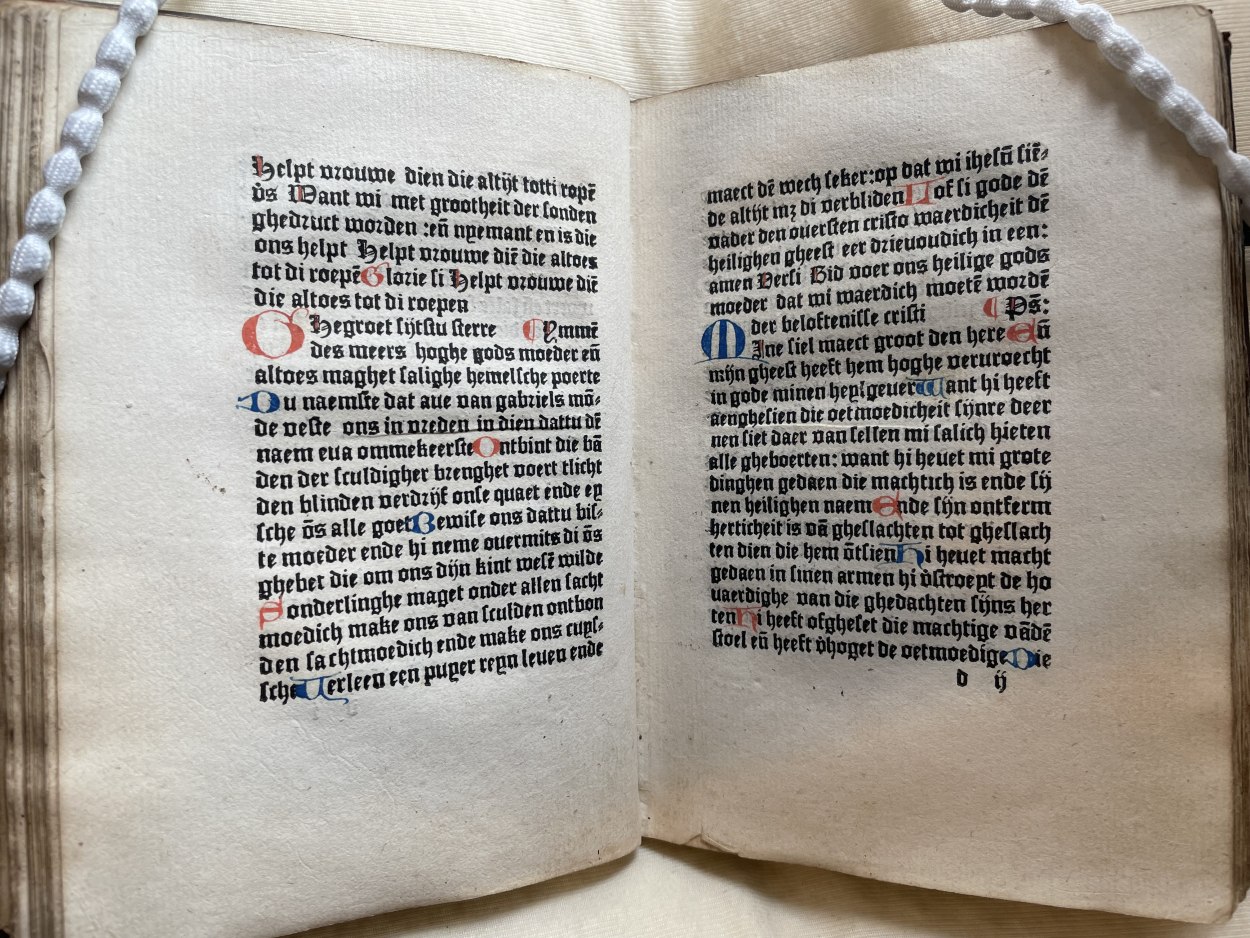 Helpt vrouwe dien die altijt totti ropē
v̄s Want wi met grootheit der sonden
ghedruct worden :en̄ nyemant en is die
ons helpt Helpt vrouwe diē die altoes
tot di roepē Glorie si Helpt vrouwe diē
die altoes tot di roepen
Ghegroet sijtstu sterre ¶ ymmē
des meers hoghe gods moeder en̄
altoes maghet salighe hemelsche poerte
Du naemste dat aue van gabriels mō-
de veste ons in vreden in dien dattu dē
naem eua ommekeerste Ontbint die bā
den der sculdigher brenghet voert tlicht
den blinden verdrijf onse quaet ende ey
sche ōs alle goet Bewise ons dattu bis-
te moeder ende hi neme ouermits di ōs
ghebet die om ons dijn kint wesē wilde
Sonderlinghe maget onder allen sacht
moedich make ons van sculden ontbon
den sachtmoedich ende make ons cuys-
sche Uerleen een puyer reyn leuen ende
maect dē wech seker:op dat wi ihesū siē-
de altijt mꝫ di verbliden Lof si gode dē
vader den ouersten cristo waerdicheit dē
heilighen gheest eer drieuoudich in een:
amen Versi Bid voer ons heilige gods
moeder dat wi waerdich moetē wordē
der beloftenisse cristi ¶ Ps̄:
MIne siel maect groot den here En̄
mijn gheest heeft hem hoghe veruroecht
in gode minen heylgeuer Want hi heeft
aenghesien die oetmoedicheit sijnre deer
nen siet daer van sellen mi salich hieten
alle gheboerten: want hi heuet mi grote
dinghen gedaen die machtich is ende sij
nen heilighen naem Ende sijn ontferm
herticheit is vā gheslachten tot gheslach
ten dien die hem ōtsien Hi heuet macht
gedaen in sinen armen hi v̄stroept de ho
uaerdighe van die ghedachten sijns her
ten Hi heeft ofgheset die machtige vādē
stoel en̄ heeft v̄hoget de oetmoedige Die
d ij